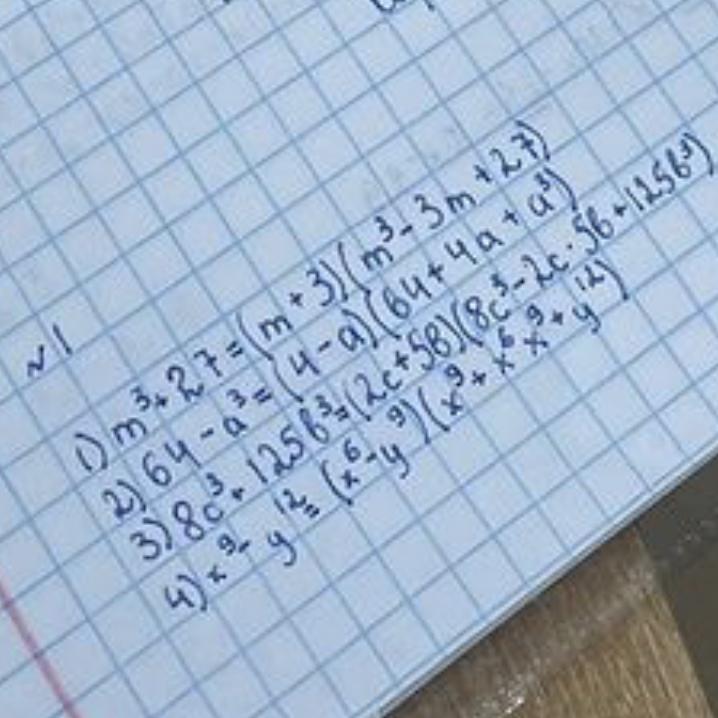 №1
1) m³+27=(m+3)(m³-3m+27)
2) 64-a³=(4-a)(64+4a+a³)
3) 8c³+125b³=(2c+5b)(8c³-2c·5b+125b³)
4) x⁹-y¹²=(x⁶-y⁹)(x⁹+x⁶x⁹+y¹²)